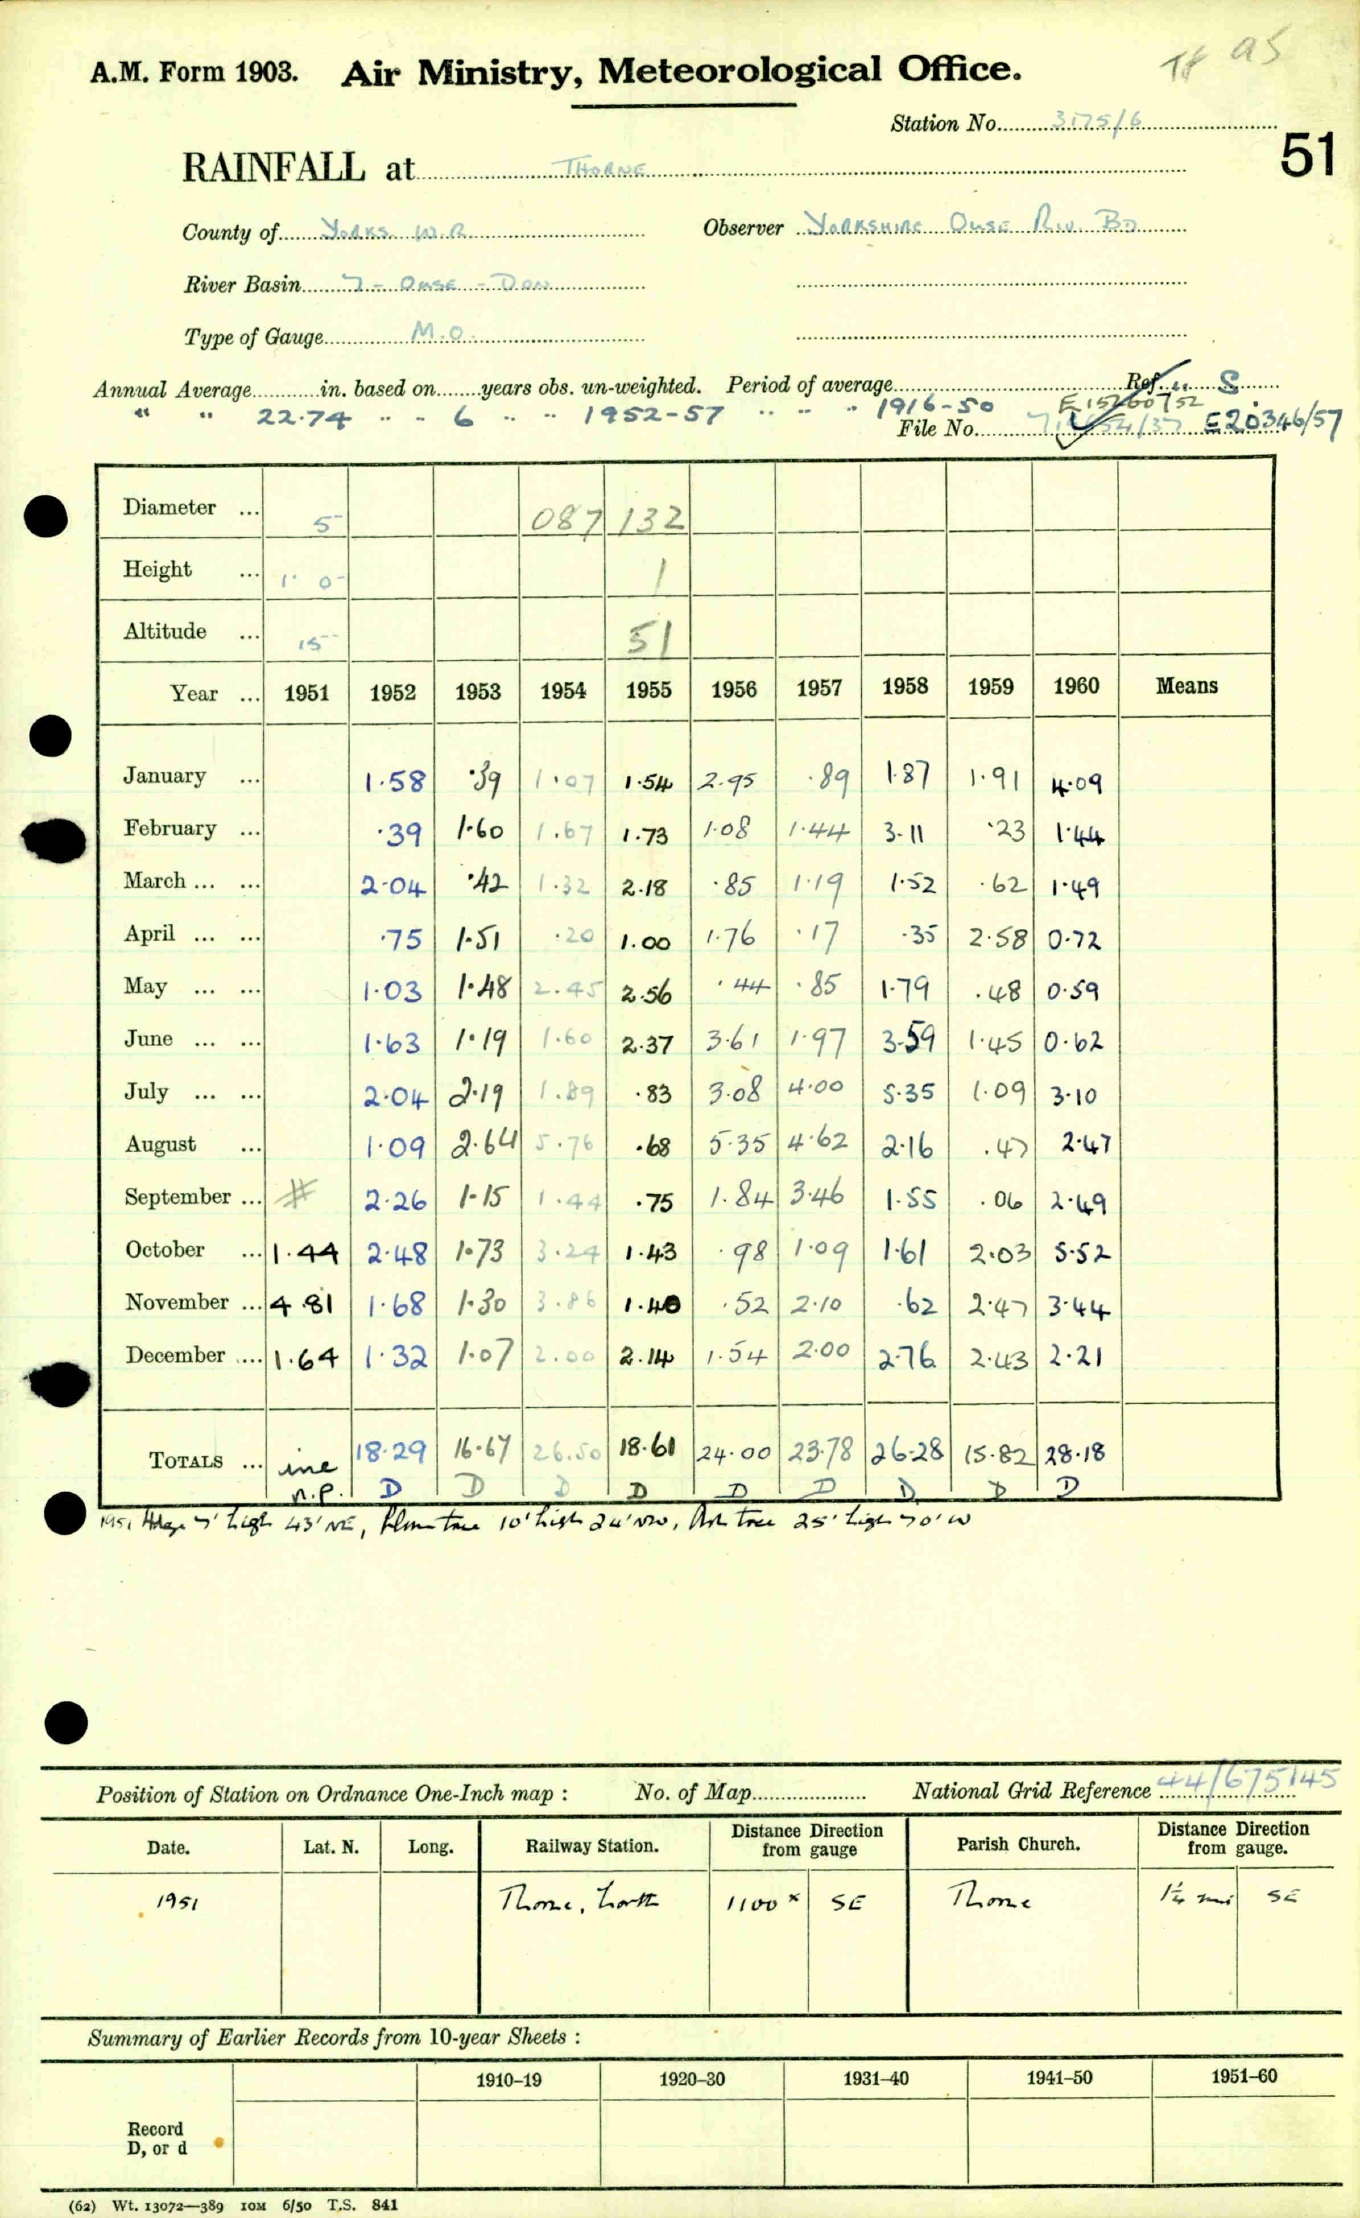 TF 95
A.M. Form 1903. Air Ministry, Meteorological Office.
Station No. 3175/6
51
RAINFALL at THORNE
County of YORKS W.R Observer YORKSHIRE OUSE RIV. BD
River Basin 7 - OUSE - DON
Type of Gauge M.O.
Annual Average in. based on years obs. un-weighted. Period of average Ref. " S
" " 22.74 " " 6 " " 1952-57 " " " 1916-50
File No. E20346/57
Diameter ... 5 087 132
Height ... 1' 0 1
Altitude ... 15 51
Year ... 1951 1952 1953 1954 1955 1956 1957 1958 1959 1960 Means
January ... 1.58 .39 1.07 1.54 2.95 .89 1.87 1.91 4.09
February ... .39 1.60 1.67 1.73 1.08 1.44 3.11 .23 1.44
March ... ... 2.04 .42 1.32 2.18 .85 1.19 1.52 .62 1.49
April ... ... .75 1.51 .20 1.00 1.76 .17 .35 2.58 0.72
May ... ... 1.03 1.48 2.45 2.56 .44 .85 1.79 .48 0.59
June ... ... 1.63 1.19 1.60 2.37 3.61 1.97 3.59 1.45 0.62
July ... ... 2.04 2.19 1.89 .83 3.08 4.00 5.35 1.09 3.10
August ... 1.09 2.64 5.76 .68 5.35 4.62 2.16 .47 2.47
September ... # 2.26 1.15 1.44 .75 1.84 3.46 1.55 .06 2.49
October ... 1.44 2.48 1.73 3.24 1.43 .98 1.09 1.61 2.03 5.52
November ... 4.81 1.68 1.30 3.86 1.40 .52 2.10 .62 2.47 3.44
December .... 1.64 1.32 1.07 2.00 2.14 1.54 2.00 2.76 2.43 2.21
TOTALS ... inc 18.29 16.67 26.50 18.61 24.00 23.78 26.28 15.82 28.18
n.p. D D D D D D D D D
1951 Hedge 7' high 43' NE, Plum tree 10' high 24' NW, Ash tree 25' high 70' W
Position of Station on Ordnance One-Inch map : No. of Map National Grid Reference 44/675145
Date. Lat. N. Long. Railway Station. Distance Direction from gauge Parish Church. Distance Direction from gauge.
1951 Thorne, North 1100 x SE Thorne 1¼ mi SE
Summary of Earlier Records from 10-year Sheets :
1910–19 1920–30 1931–40 1941–50 1951–60
Record
D, or d
(62) Wt. 13072—389 10M 6/50 T.S. 841